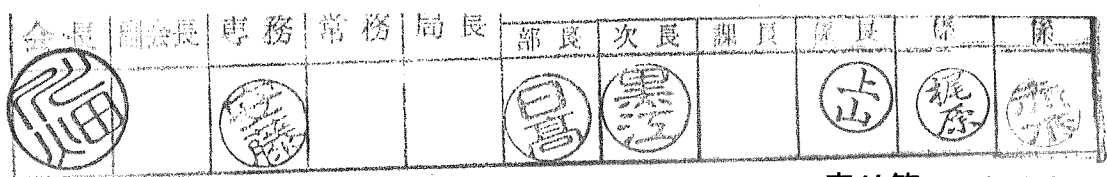 会長 副会長 専務 常務 局長 部長 次長 課長 係長 係 係
日高 黒江 上山 梶原